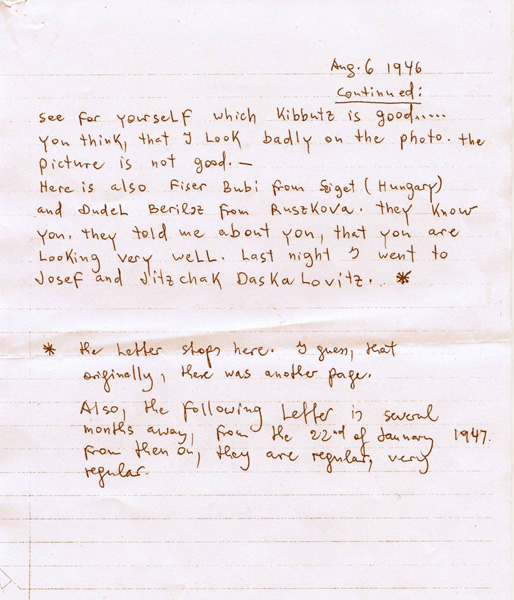 Aug. 6 1946
Continued:
see for yourself which Kibbutz is good.....
You think, that I look badly on the photo. the
picture is not good. —
Here is also Fiser Bubi from Sziget (Hungary)
and Dudel Berilsz from Ruszkova. they know
you. they told me about you, that you are
looking very well. Last night I went to
Josef and Jitzchak Daskalovitz.. *
* the letter stops here. I guess, that
originally, there was another page.
Also, the following letter is several
months away, from the 22nd of January 1947.
From then on, they are regular, very
regular.